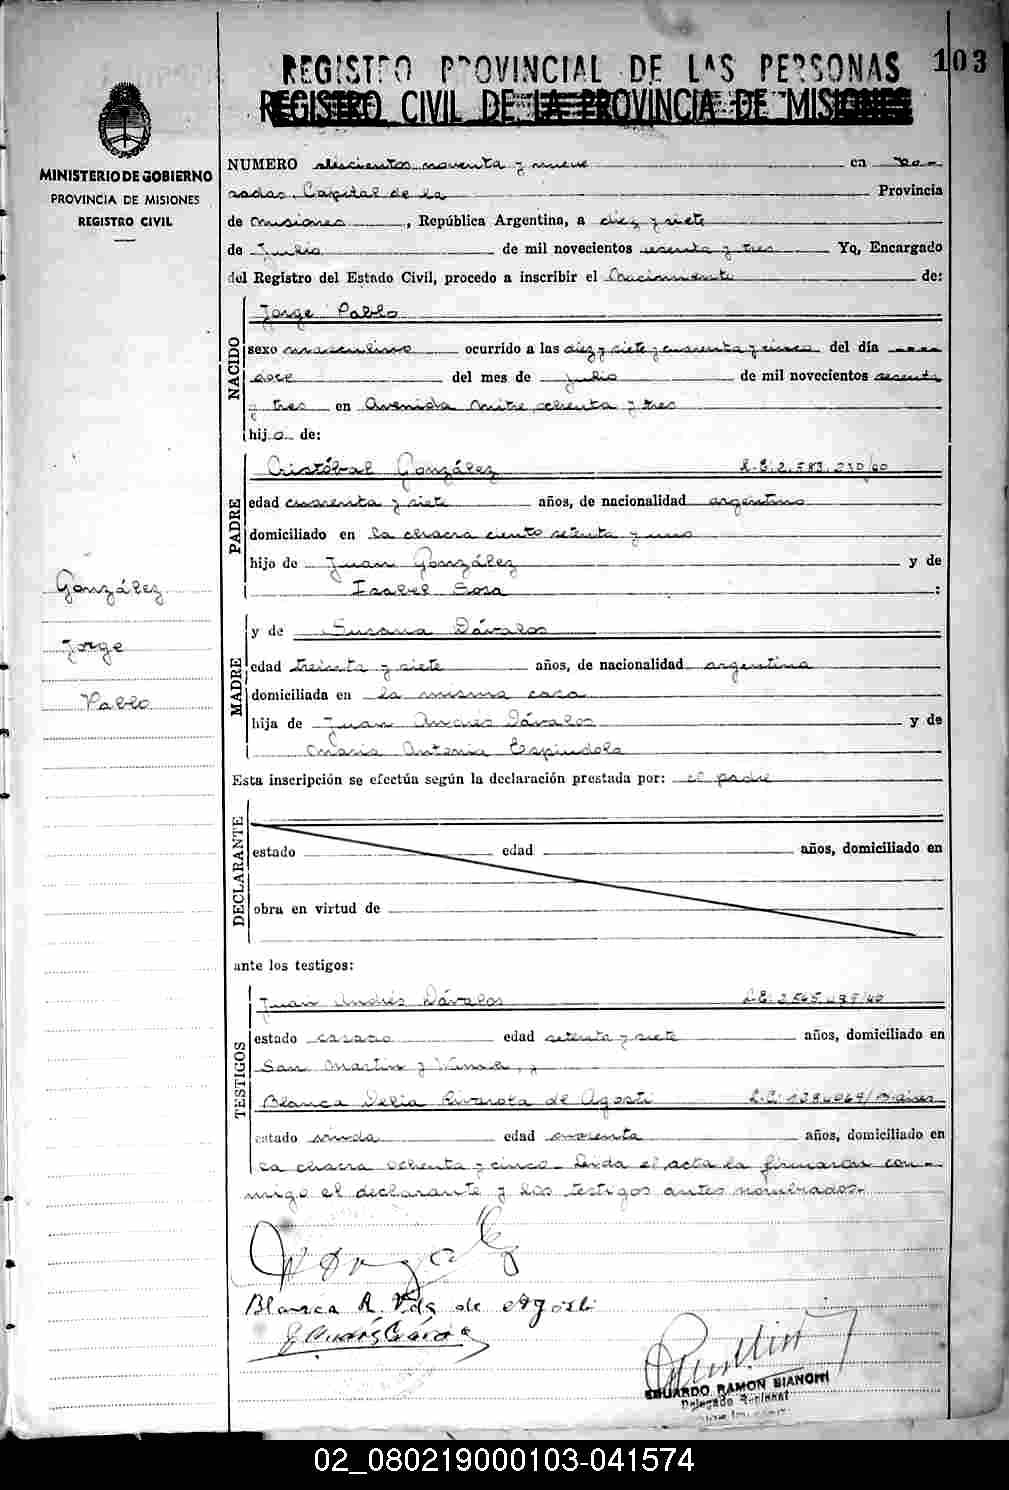 REGISTRO PROVINCIAL DE LAS PERSONAS
103
REGISTRO CIVIL DE LA PROVINCIA DE MISIONES
MINISTERIO DE GOBIERNO
PROVINCIA DE MISIONES
REGISTRO CIVIL
NUMERO doscientos noventa y nueve en Po-
sadas, Capital de la Provincia
de Misiones, República Argentina, a diez y siete
de Julio de mil novecientos sesenta y tres Yo, Encargado
del Registro del Estado Civil, procedo a inscribir el Nacimiento de:
NACIDO
Jorge Pablo
sexo masculino ocurrido a las diez y siete y cuarenta y cinco del día
doce del mes de julio de mil novecientos sesenta
y tres en Avenida Mitre ochenta y tres
hijo de:
PADRE
Cristóbal González L.E. 2.583.230/60
edad cuarenta y siete años, de nacionalidad argentino
domiciliado en la chacra ciento setenta y uno
hijo de Juan González y de
Isabel Sosa :
González
Jorge
Pablo
MADRE
y de Susana Dávalos
edad treinta y siete años, de nacionalidad argentina
domiciliada en la misma casa
hija de Juan Andrés Dávalos y de
María Antonia Espindola
Esta inscripción se efectúa según la declaración prestada por: el padre
DECLARANTE
estado edad años, domiciliado en
obra en virtud de
ante los testigos:
TESTIGOS
Juan Andrés Dávalos L.E.
estado casado edad setenta y siete años, domiciliado en
San Martin y
Blanca Delia Rivarola de Agosti L.C.
estado viuda edad cuarenta años, domiciliado en
la chacra ochenta y cinco. Leida el acta la firmaron con-
migo el declarante y los testigos antes nombrados.-
Blanca R. Vda de Agosti
EDUARDO RAMON BIANCHI
Delegado Regional
02_080219000103-041574